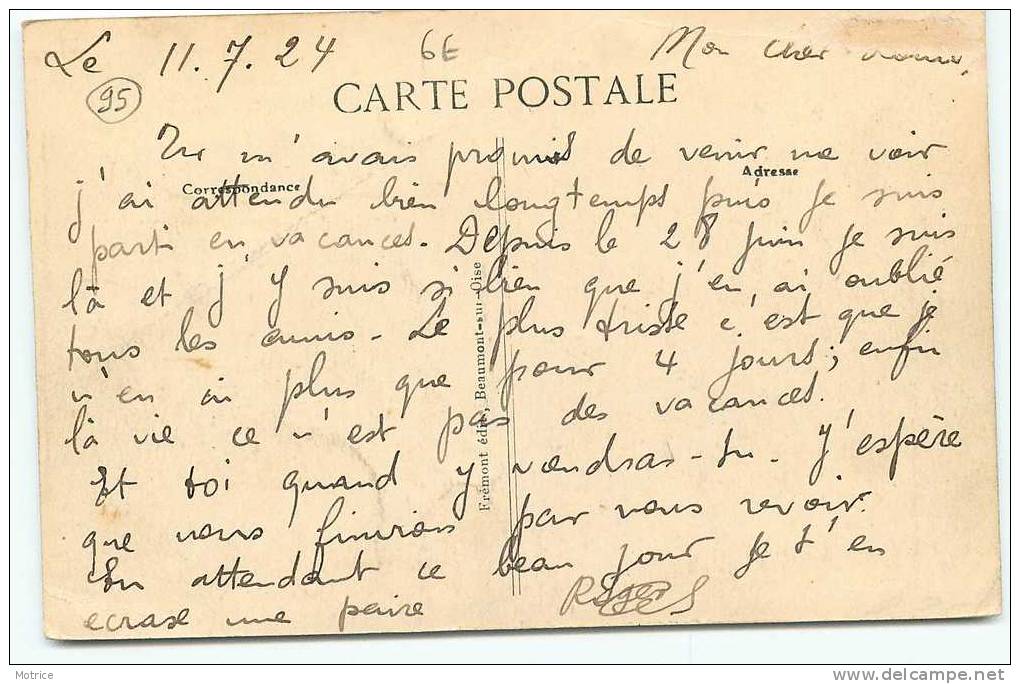 Le 11.7.24 6E Mon cher
95
CARTE POSTALE
Tu m'avais promis de venir me voir
Correspondance
Adresse
j'ai attendu bien longtemps puis je suis
parti en vacances. Depuis le 28 juin je suis
là et j'y suis si bien que j'en ai oublié
tous les amis. Le plus triste c'est que je
n'en ai plus que pour 4 jours; enfin
là vie ce n'est pas des vacances.
Et toi quand y vendras-tu. J'espère
que nous finirons par nous revoir.
En attendant ce beau jour je t'en
ecrase une paire
Roger
Frémont édit., Beaumont-sur-Oise
Motrice
delcampe.net